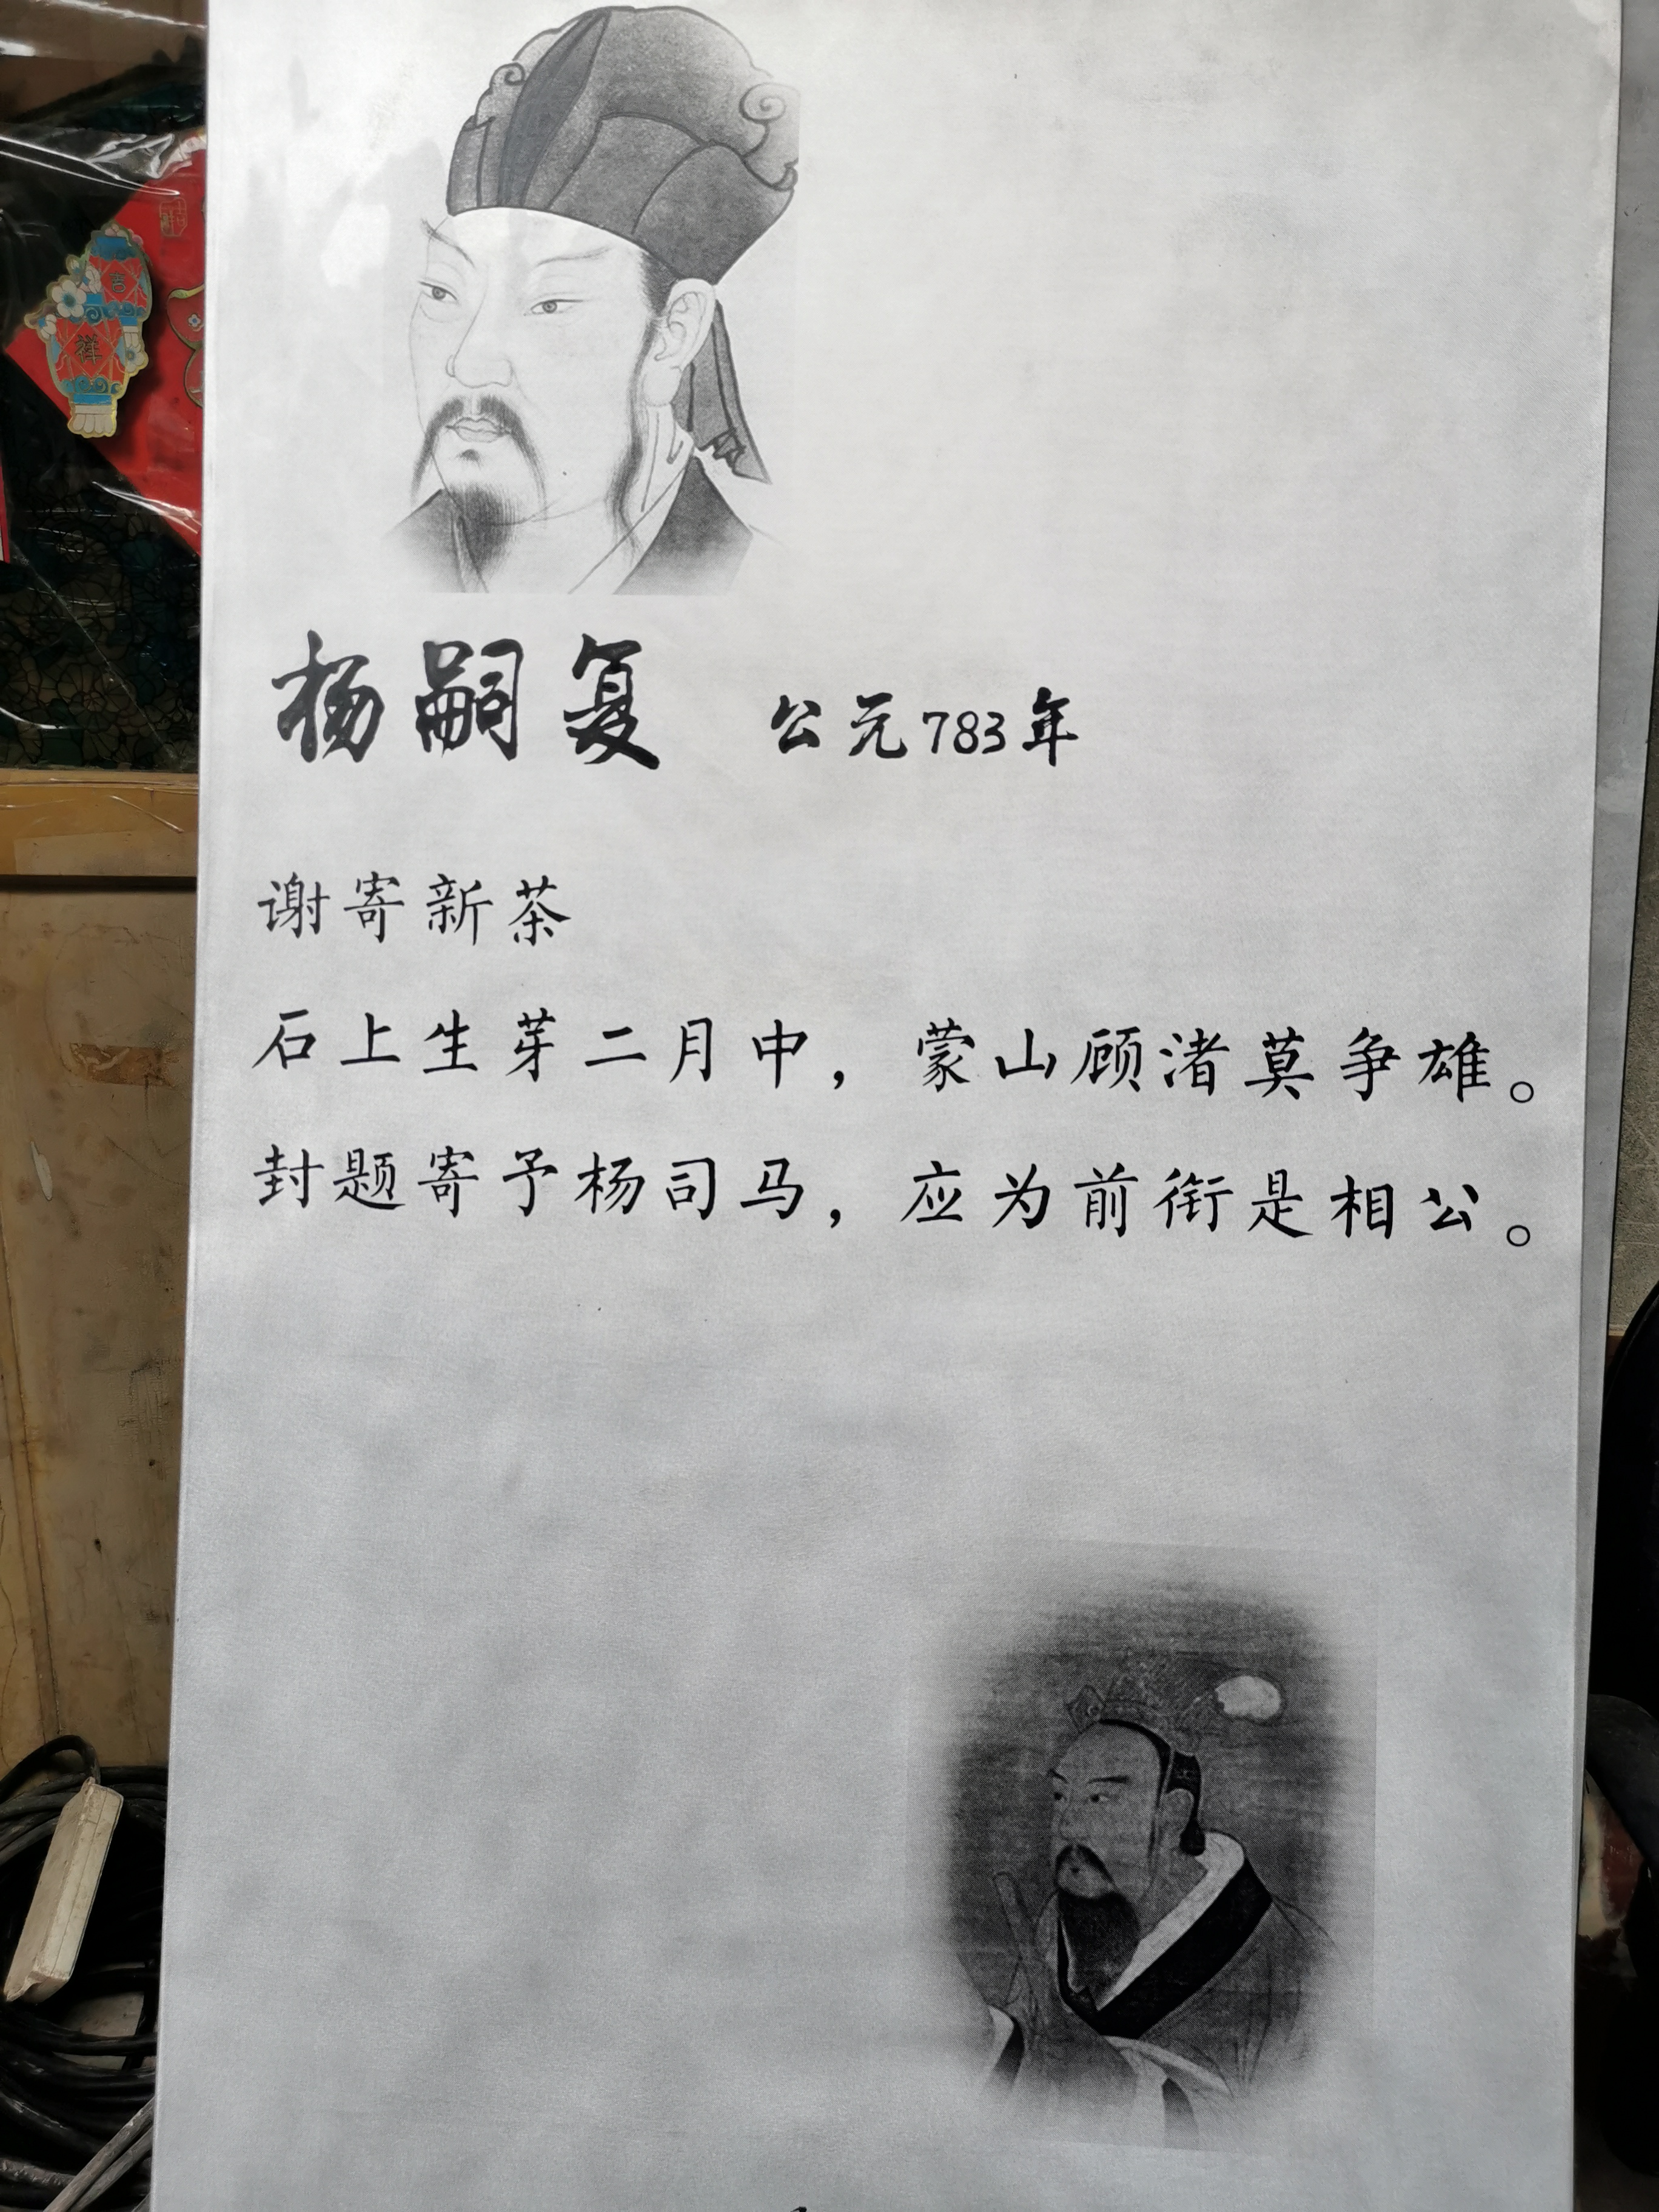 吉
祥
杨嗣复 公元783年
谢寄新茶
石上生芽二月中，蒙山顾渚莫争雄。
封题寄予杨司马，应为前衔是相公。